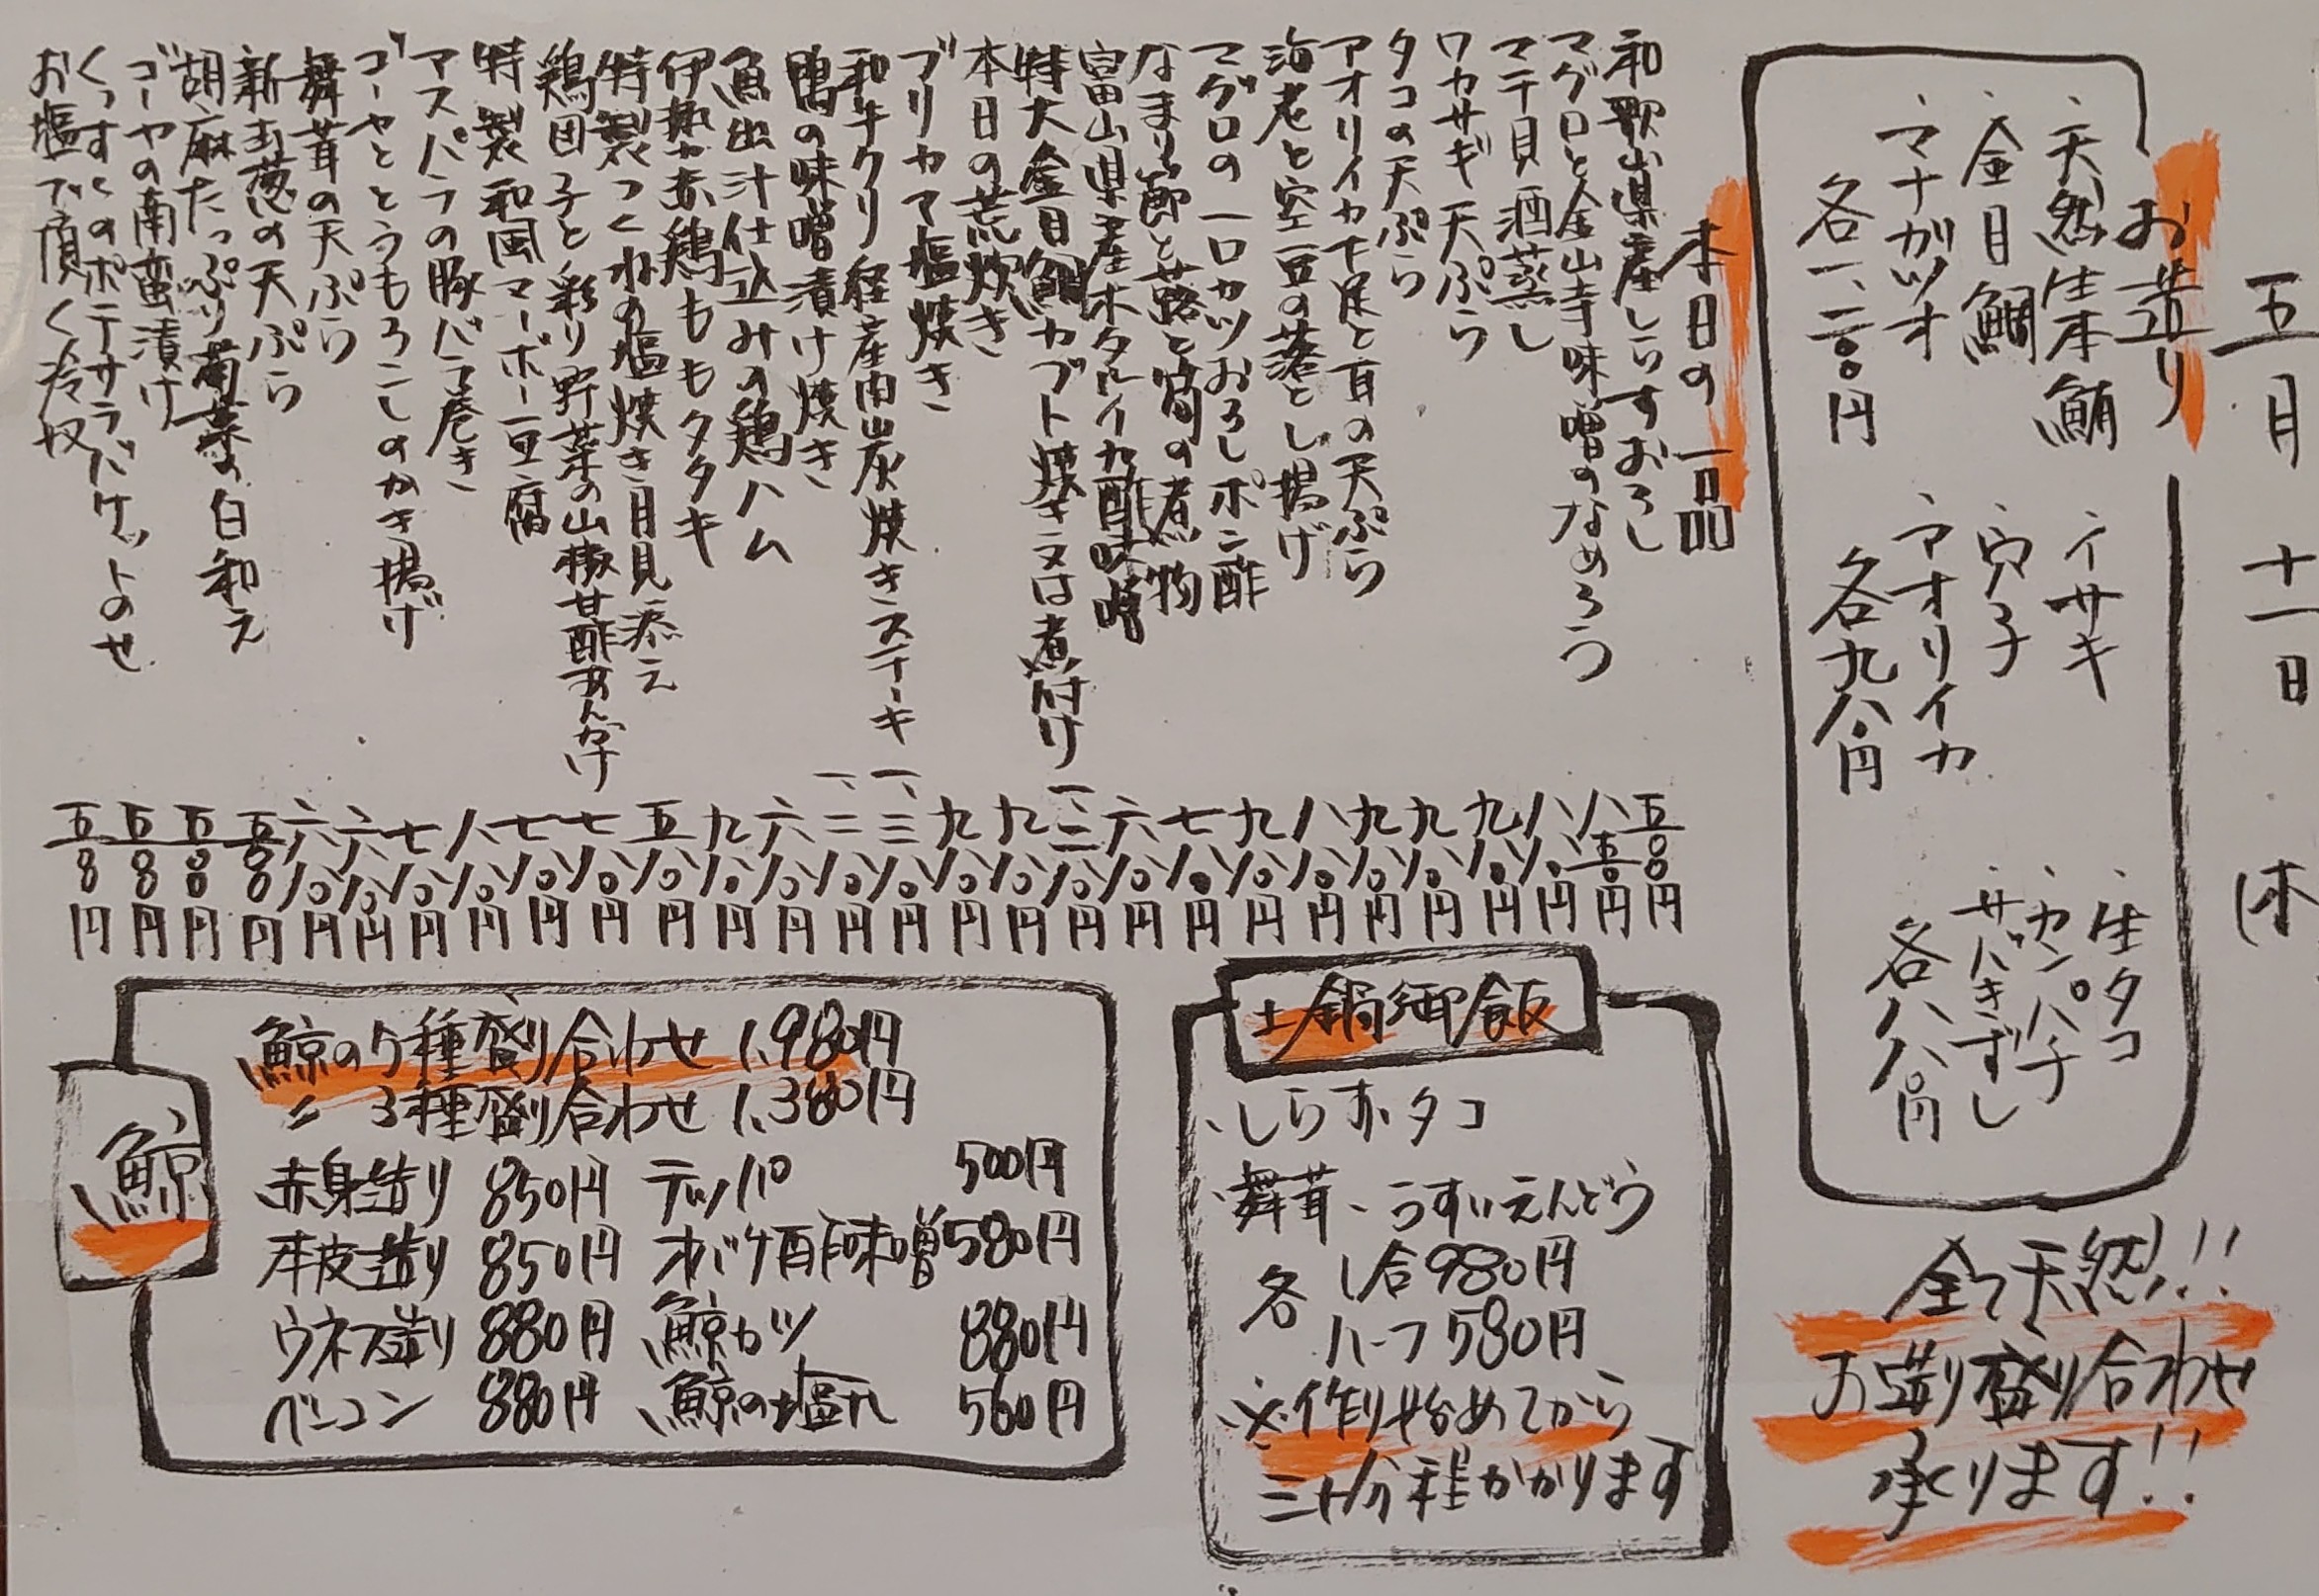 五月十一日(木
お造り
、天然生本鮪
、金目鯛
、マナガツオ
各一、二八〇円
、イサキ
、穴子
、アオリイカ
各九八〇円
、生タコ
、カンパチ
、サバきずし
各八八〇円
全て天然!!
お造り盛り合わせ
承ります!!
本日の一品
和歌山県産しらすおろし 五〇〇円
マグロと金山寺味噌のなめろう 八五〇円
マテ貝酒蒸し 八八〇円
ワカサギ天ぷら 九八〇円
タコの天ぷら 九八〇円
アオリイカ下足と耳の天ぷら 九八〇円
海老と空豆の落とし揚げ 八八〇円
マグロの一口カツおろしポン酢 九八〇円
なまり節と蕗と筍の煮物 七八〇円
富山県産ホタルイカ酢味噌 六八〇円
特大金目鯛カブト焼き又は煮付け 一、三八〇円
本日の荒炊き 九八〇円
ブリカマ塩焼き 九八〇円
和牛クリ 経産肉炭焼きステーキ 一、三八〇円
鴨の味噌漬け焼き 一、二八〇円
魚出汁仕込みの鶏ハム 六八〇円
伊勢赤鶏ももタタキ 九八〇円
特製つくねの塩焼き月見添え 五八〇円
鶏団子と彩り野菜の山椒甘酢あんかけ 七八〇円
特製和風マーボー豆腐 七八〇円
アスパラの豚バラ巻き 八八〇円
ゴーヤととうもろこしのかき揚げ 七八〇円
舞茸の天ぷら 六八〇円
新玉葱の天ぷら 六八〇円
胡麻たっぷり菊菜の白和え 五〇〇円
ゴーヤの南蛮漬け 五〇〇円
くっすくのポテサラバケットのせ 五〇〇円
お塩で頂く冷奴 五〇〇円
土鍋御飯
、しらす、タコ
、舞茸、うすいえんどう
各 1合980円
ハーフ580円
※作り始めてから
三十分程かかります
鯨
鯨の5種盛り合わせ 1,980円
〃 3種盛り合わせ 1,380円
赤身造り 850円 テッパ 500円
本皮造り 850円 オバケ酢味噌 580円
ウネス造り 880円 鯨カツ 880円
ベーコン 880円 鯨の塩タレ 560円